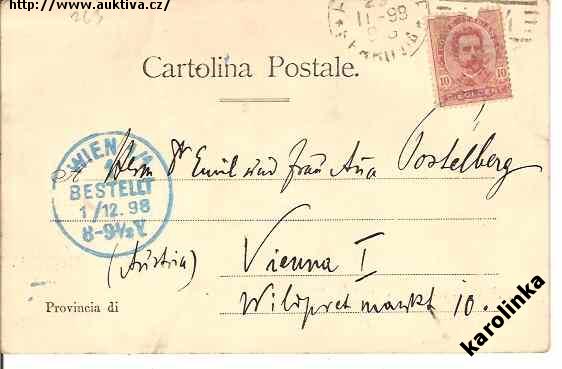 http://www.auktiva.cz/
264
11-98
Cartolina Postale.
10 10
WIEN 1/1
BESTELLT
1/12.98
8-9½V
Herrn Dr Emil und Frau Ana Postelberg
(Austria) Vienna I
Provincia di Wildpretmarkt 10.
karolinka